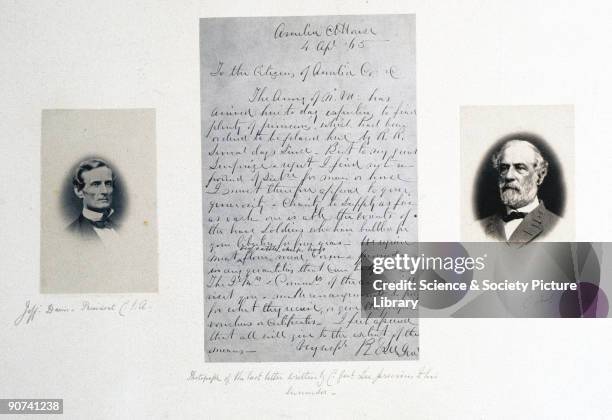 Amelia Ct House
4 Apl '65
To the Citizens of Amelia Co.
The Army of N. Va. has
arrived here to day expecting to find
plenty of provisions, which had been
ordered to be placed here by R. R.
several days since. But to my great
surprise & regret I find not a
pound of subce for man or horse
I must therefore appeal to your
generosity & charity to supply as far
as each one is able the wants of
the brave soldiers who have battled for
your liberty for four years.
We require
meat
cattle, sheep, hogs
in any quantities that can be
visit you
for what they
I feel assured
that all will give to the extent of their
means.
Very respt
R E Lee
Genl
Jeff. Davis. President C.S.A.
Photograph of the last letter written by C. Genl. Lee previous to his
surrender.
Science & Society Picture
Library
90741238